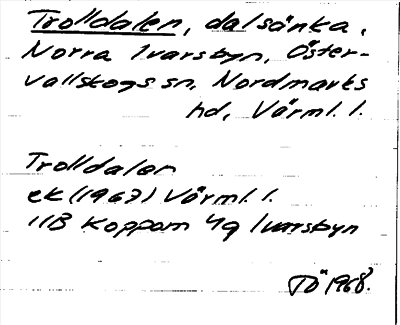 Trolldalen, dalsänka,
Norra Ivarsbyn, Öster-
vallskogs sn, Nordmarks
hd, Värml. l.
Trolldalen
ek (1967) Värml. l.
11B Koppom 4g Ivarsbyn
TÖ 1968.